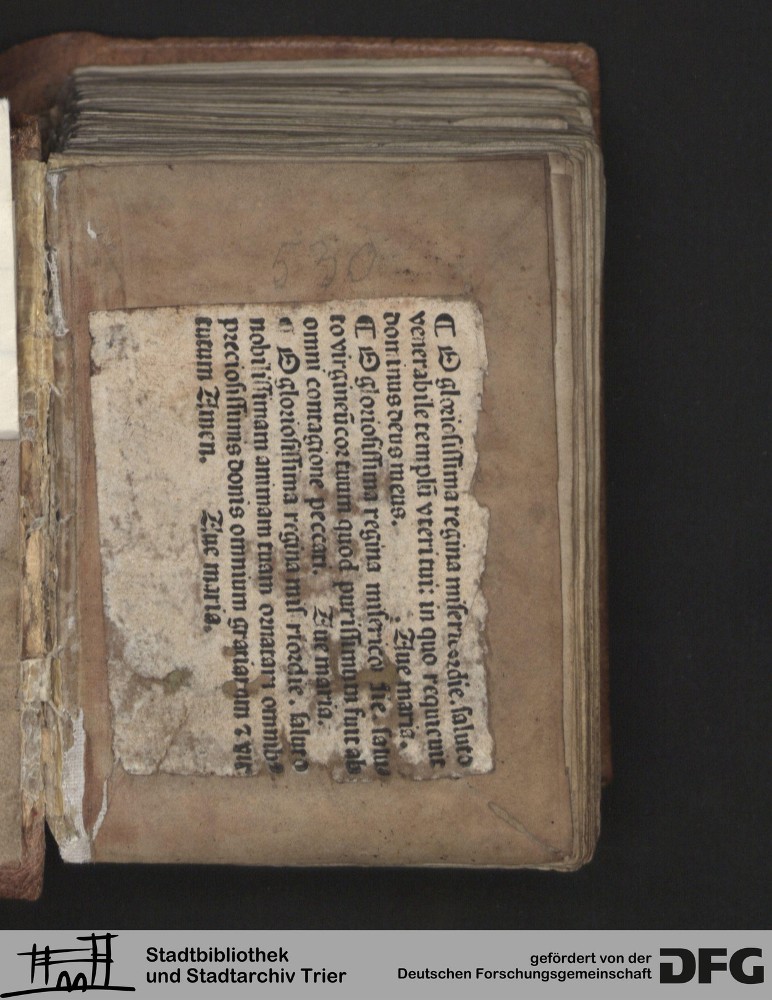 530
⁌ O glorioſiſſima regina miſericordie. ſaluto
venerabile templū vteri tui: in quo requieuit
dominus deus meus. Aue maria.
⁌ O glorioſiſſima regina
to virgineū cor tuum quod puriſſimum fuit ab
omni contagione peccati. Aue maria.
⁌ O glorioſiſſima regina ſaluto
nobiliſſimam animam tuam ornatam omnibꝰ
precioſiſſimis donis omnium gratiarum ⁊ vir
tutum Amen. Aue maria.
Stadtbibliothek
und Stadtarchiv Trier
gefördert von der
Deutschen Forschungsgemeinschaft
DFG